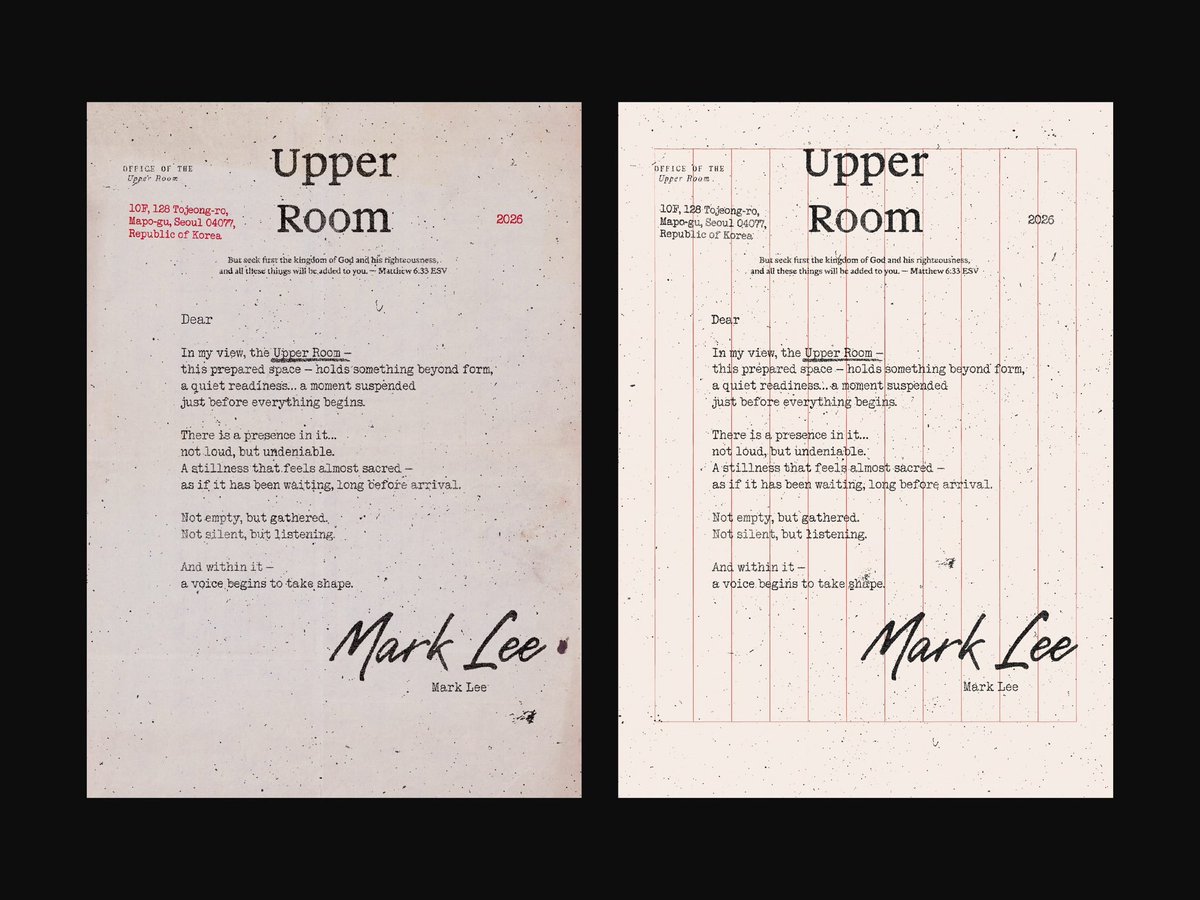 OFFICE OF THE
Upper Room
Upper
Room
10F, 128 Tojeong-ro,
Mapo-gu, Seoul 04077,
Republic of Korea
2026
But seek first the kingdom of God and his righteousness,
and all these things will be added to you. — Matthew 6:33 ESV
Dear
In my view, the Upper Room —
this prepared space — holds something beyond form,
a quiet readiness... a moment suspended
just before everything begins.
There is a presence in it...
not loud, but undeniable.
A stillness that feels almost sacred —
as if it has been waiting, long before arrival.
Not empty, but gathered.
Not silent, but listening.
And within it —
a voice begins to take shape.
Mark Lee
Mark Lee
OFFICE OF THE
Upper Room
Upper
Room
10F, 128 Tojeong-ro,
Mapo-gu, Seoul 04077,
Republic of Korea
2026
But seek first the kingdom of God and his righteousness,
and all these things will be added to you. — Matthew 6:33 ESV
Dear
In my view, the Upper Room —
this prepared space — holds something beyond form,
a quiet readiness... a moment suspended
just before everything begins.
There is a presence in it...
not loud, but undeniable.
A stillness that feels almost sacred —
as if it has been waiting, long before arrival.
Not empty, but gathered.
Not silent, but listening.
And within it —
a voice begins to take shape.
Mark Lee
Mark Lee